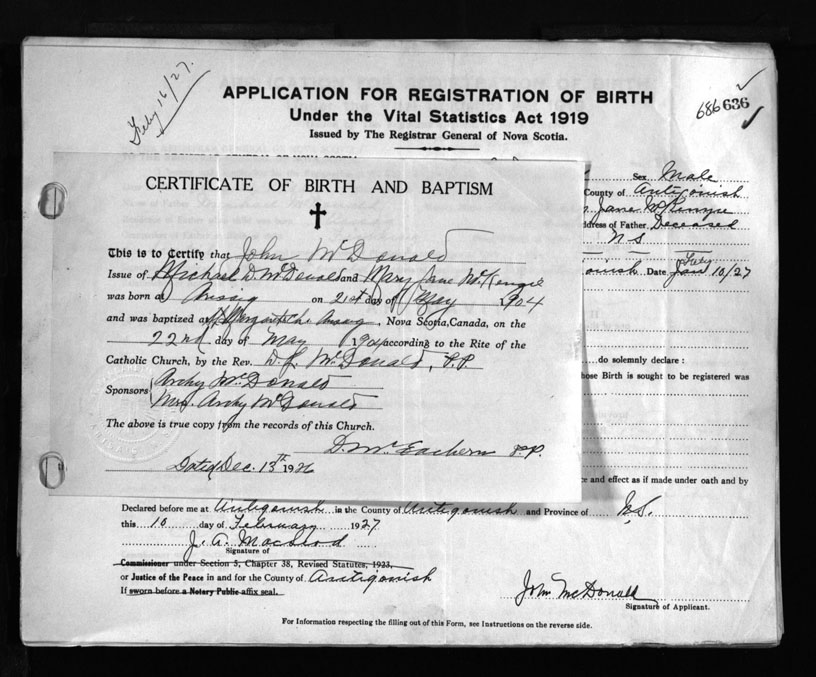 Feby 16/27.
686 636
APPLICATION FOR REGISTRATION OF BIRTH
Under the Vital Statistics Act 1919
Issued by The Registrar General of Nova Scotia.
CERTIFICATE OF BIRTH AND BAPTISM
This is to Certify that John McDonald
Issue of Michael D. McDonald and Mary Jane McKenzie
was born at Arisaig on 21st day of May 1904
and was baptized at St Margarets Ch. Arisaig, Nova Scotia, Canada, on the
22nd day of May 1904 according to the Rite of the
Catholic Church, by the Rev. D. L. McDonald, P.P.
Sponsors Archy McDonald
Mrs. Archy McDonald
The above is true copy from the records of this Church.
D. McEachern P.P.
Dated Dec. 13th 1926
Sex Male
County of Antigonish
Jane McKenzie
Address of Father, Deceased
N S
Date Jan Feby 10/27
do solemnly declare :
whose Birth is sought to be registered was
and effect as if made under oath and by
Declared before me at Antigonish in the County of Antigonish and Province of N.S.
this 10 day of February 1927
J. A. Macleod
Signature of
Commissioner under Section 5, Chapter 38, Revised Statutes, 1923,
or Justice of the Peace in and for the County of Antigonish
If sworn before a Notary Public affix seal.
John McDonald
Signature of Applicant.
For Information respecting the filling out of this Form, see Instructions on the reverse side.